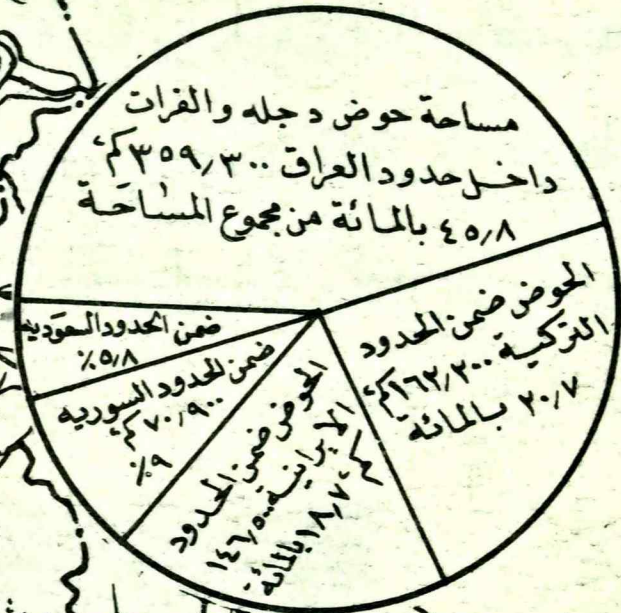 مساحة حوض دجله والفرات
داخل حدود العراق ٣٥٩٫٣٠٠ كم٢
٤٥٫٨ بالمائة من مجموع المساحة
الحوض ضمن الحدود
التركيسة ١٦٢٫٢٠٠ كم٢
٢٠٫٧ بالمائة
الحوض ضمن الحدود
الايرانية ١٤٦٫٥٠٠
كم٢ ١٨٫٧ بالمائة
ضمن الحدود السوريه
٧٠٫٩٠٠ كم٢
٩٪
ضمن الحدود السعوديه
٥٫٨٪